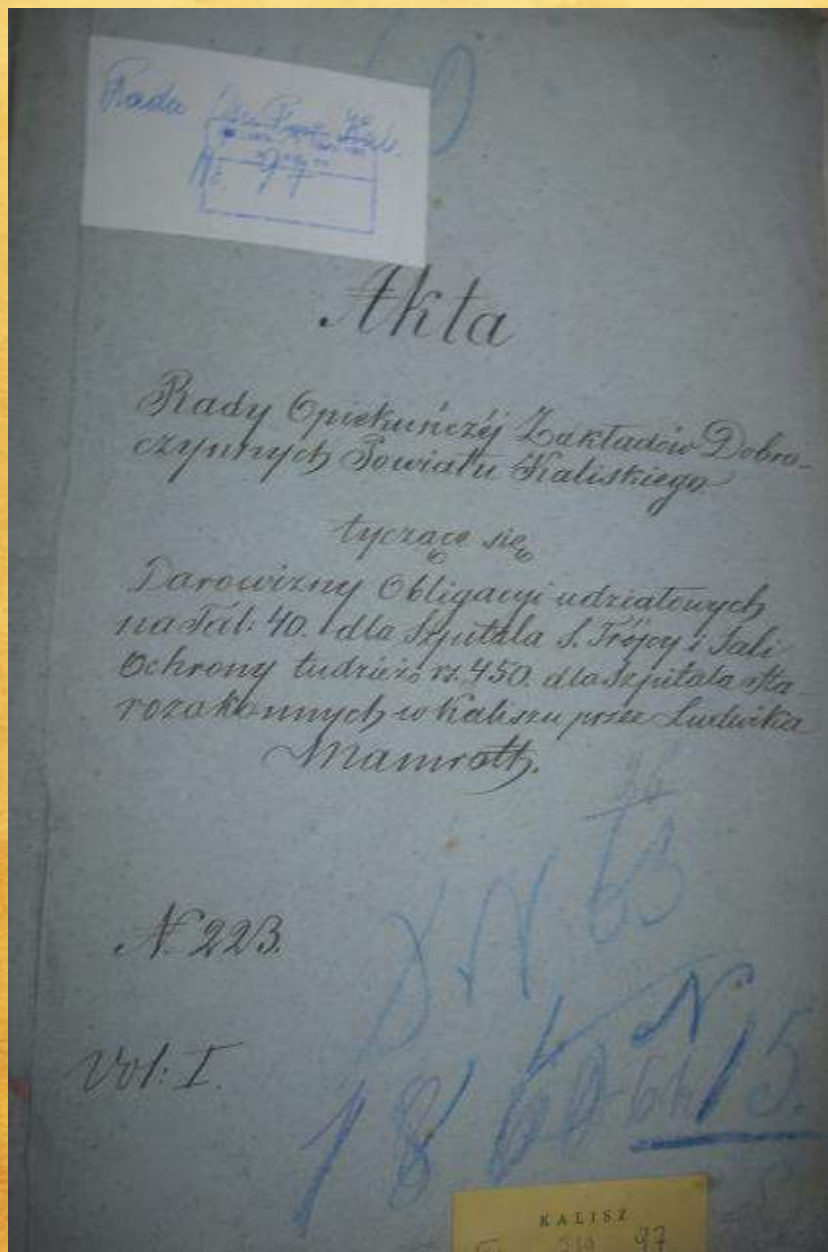 Rada Op. Pow. Kal.
№ 97
Akta
Rady Opiekuńczéj Zakładów Dobro-
czynnych Powiatu Kaliskiego
tyczące się
Darowizny Obligacyi udziałowych
na Tal: 40. dla Szpitala S. Trójcy i Sali
Ochrony tudzież rs. 450. dla Szpitala Sta-
rozakonnych w Kaliszu przez Ludwika
Mamroth.
N. 223.
Vol: I.
N
15.
KALISZ
97